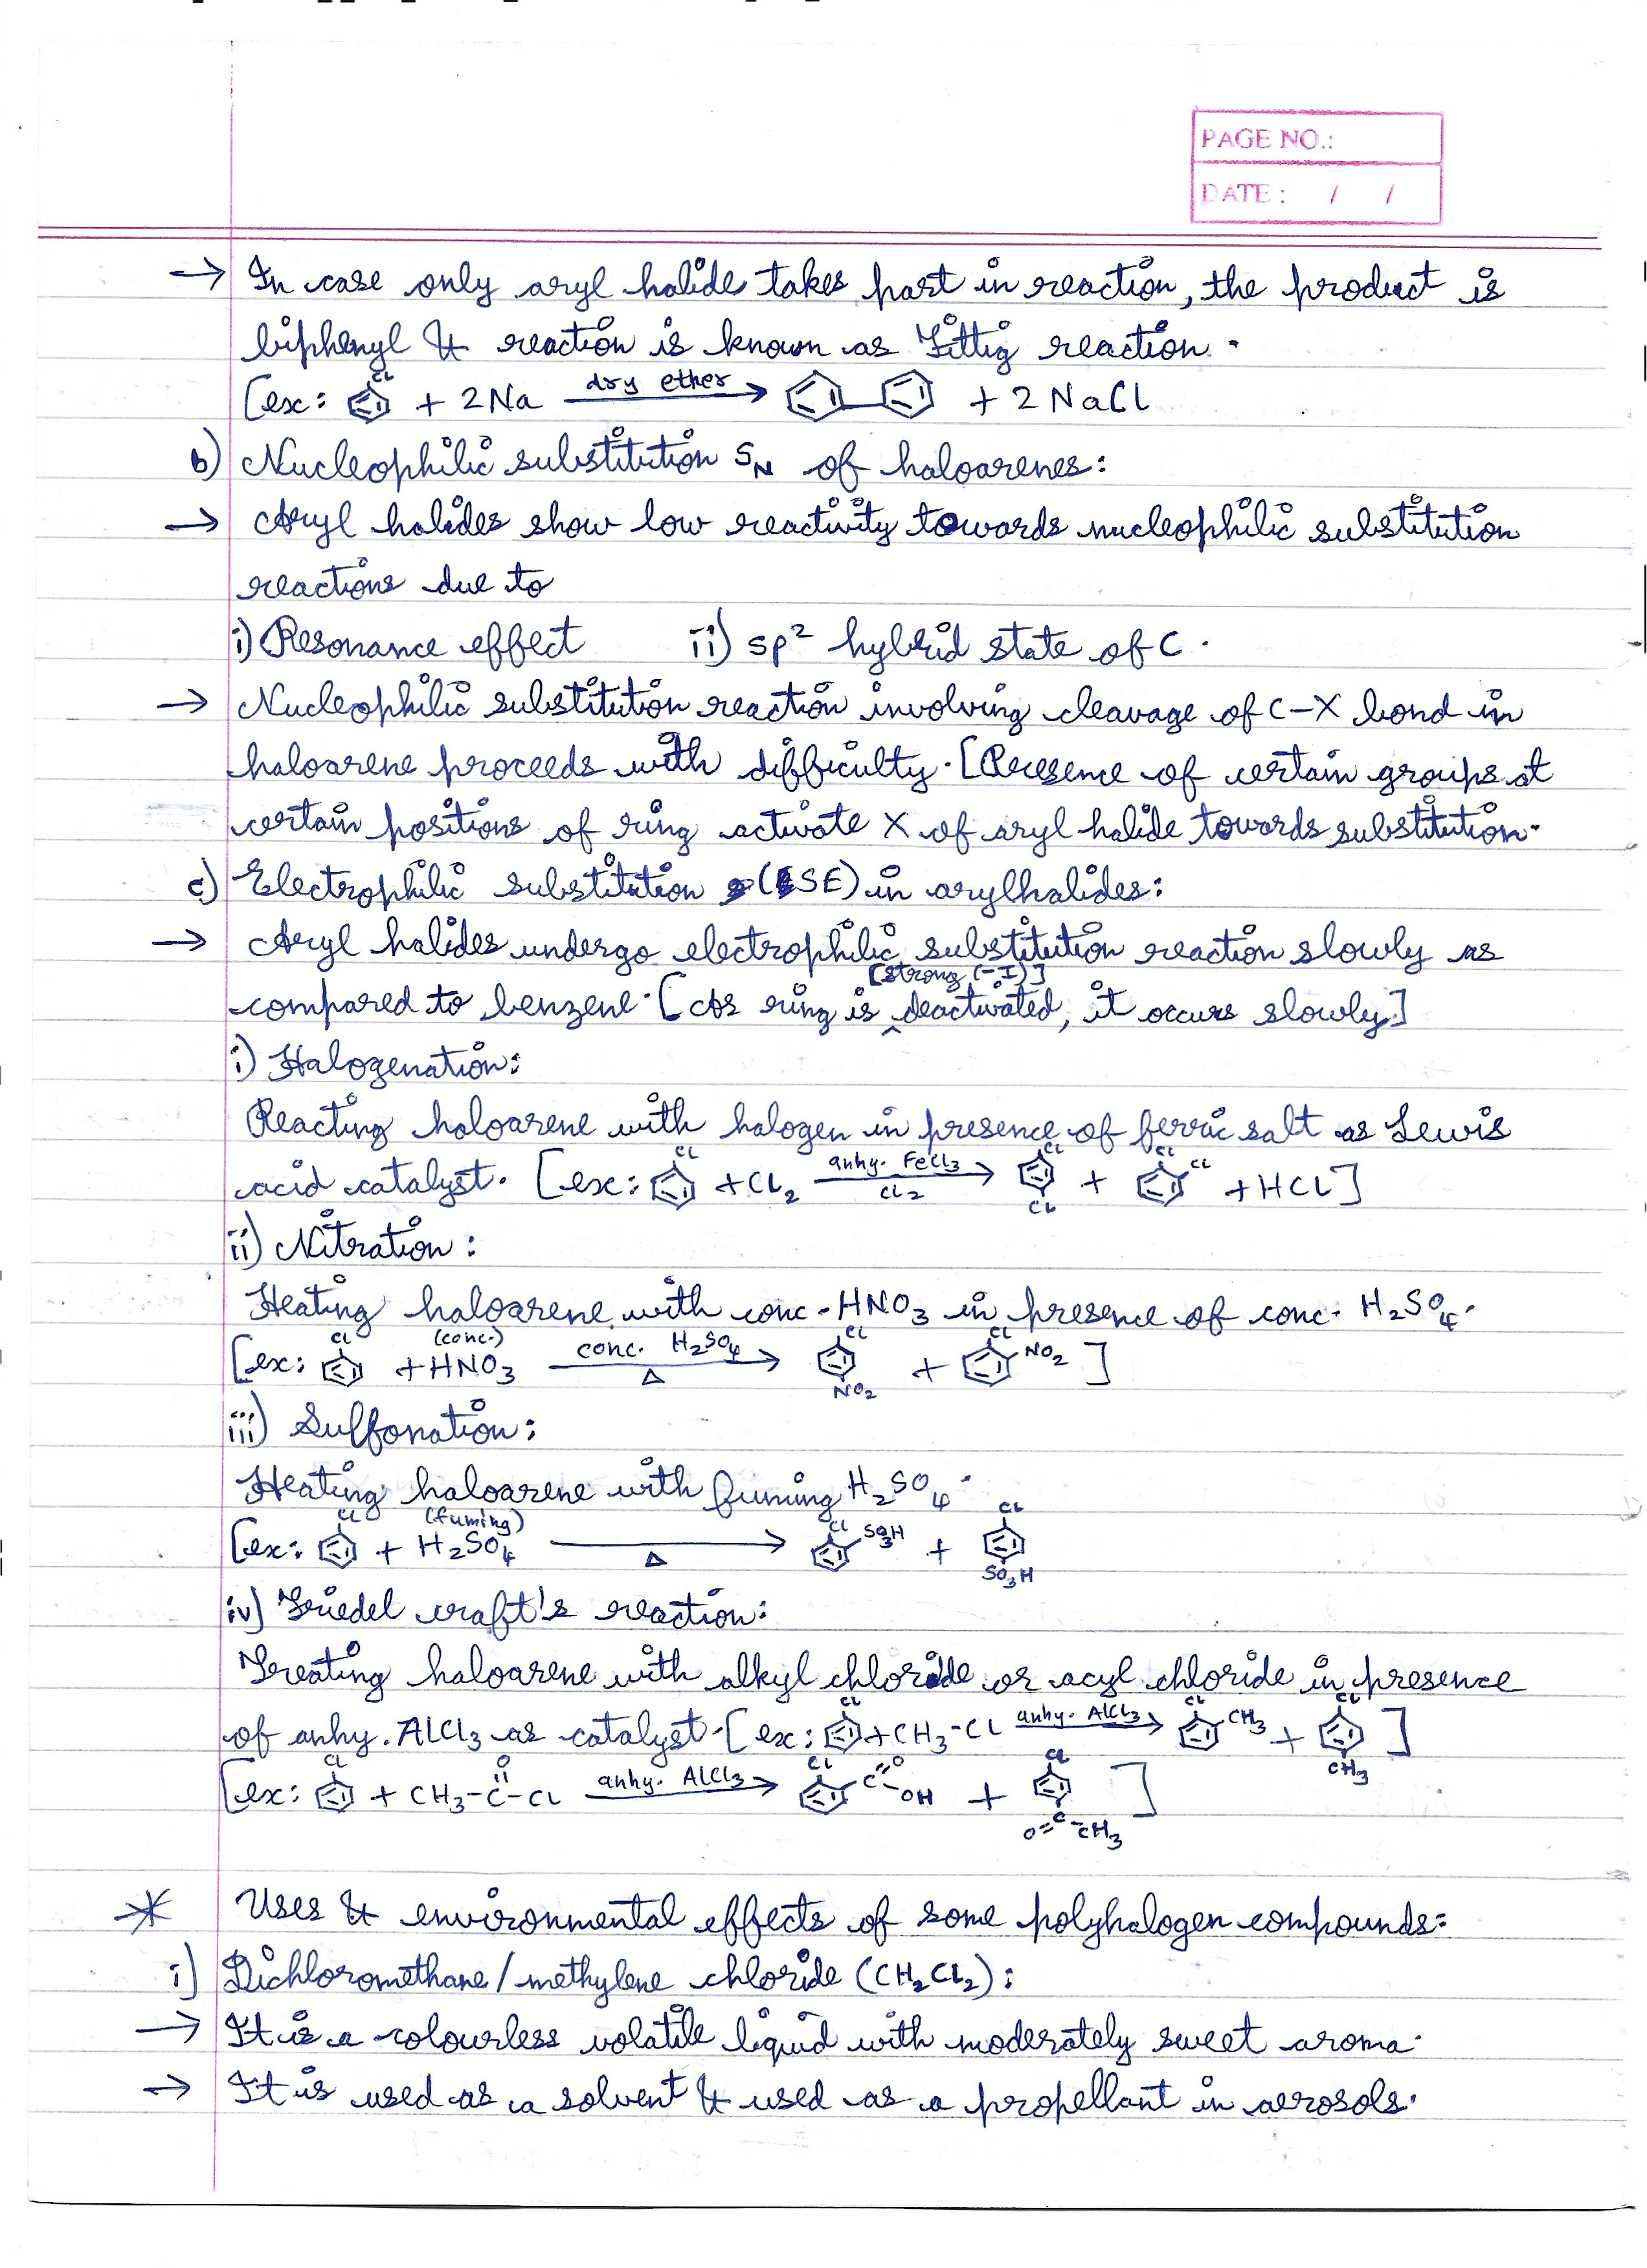 PAGE NO.:
DATE : / /
→ In case only aryl halide takes part in reaction, the product is
biphenyl & reaction is known as Fittig reaction.
[ex: Cl + 2Na dry ether → + 2 NaCl
b) Nucleophilic substitution SN of haloarenes:
→ Aryl halides show low reactivity towards nucleophilic substitution
reactions due to
i) Resonance effect ii) sp² hybrid state of C.
→ Nucleophilic substitution reaction involving cleavage of C-X bond in
haloarene proceeds with difficulty. [Presence of certain groups at
certain positions of ring activate X of aryl halide towards substitution.
c) Electrophilic substitution (SE) in arylhalides:
→ Aryl halides undergo electrophilic substitution reaction slowly as
compared to benzene. [As ring is [strong (-I)] deactivated, it occurs slowly]
i) Halogenation:
Reacting haloarene with halogen in presence of ferric salt as Lewis
acid catalyst. [ex: Cl + Cl₂ anhy. FeCl₃ → Cl₂ Cl Cl + Cl Cl + HCl]
ii) Nitration :
Heating haloarene with conc. HNO₃ in presence of conc. H₂SO₄.
[ex: Cl + HNO₃ (conc.) conc. H₂SO₄ → Δ Cl NO₂ + Cl NO₂ ]
iii) Sulfonation:
Heating haloarene with fuming H₂SO₄.
[ex: Cl + H₂SO₄ (fuming) → Δ Cl SO₃H + Cl SO₃H
iv) Friedel craft's reaction:
Treating haloarene with alkyl chloride or acyl chloride in presence
of anhy. AlCl₃ as catalyst. [ex: Cl + CH₃-Cl anhy. AlCl₃ → Cl CH₃ + Cl CH₃ ]
[ex: Cl + CH₃-C(=O)-Cl anhy. AlCl₃ → Cl C=O-OH + Cl O=C-CH₃ ]
* Uses & environmental effects of some polyhalogen compounds:
i) Dichloromethane/methylene chloride (CH₂Cl₂):
→ It is a colourless volatile liquid with moderately sweet aroma.
→ It is used as a solvent & used as a propellant in aerosols.